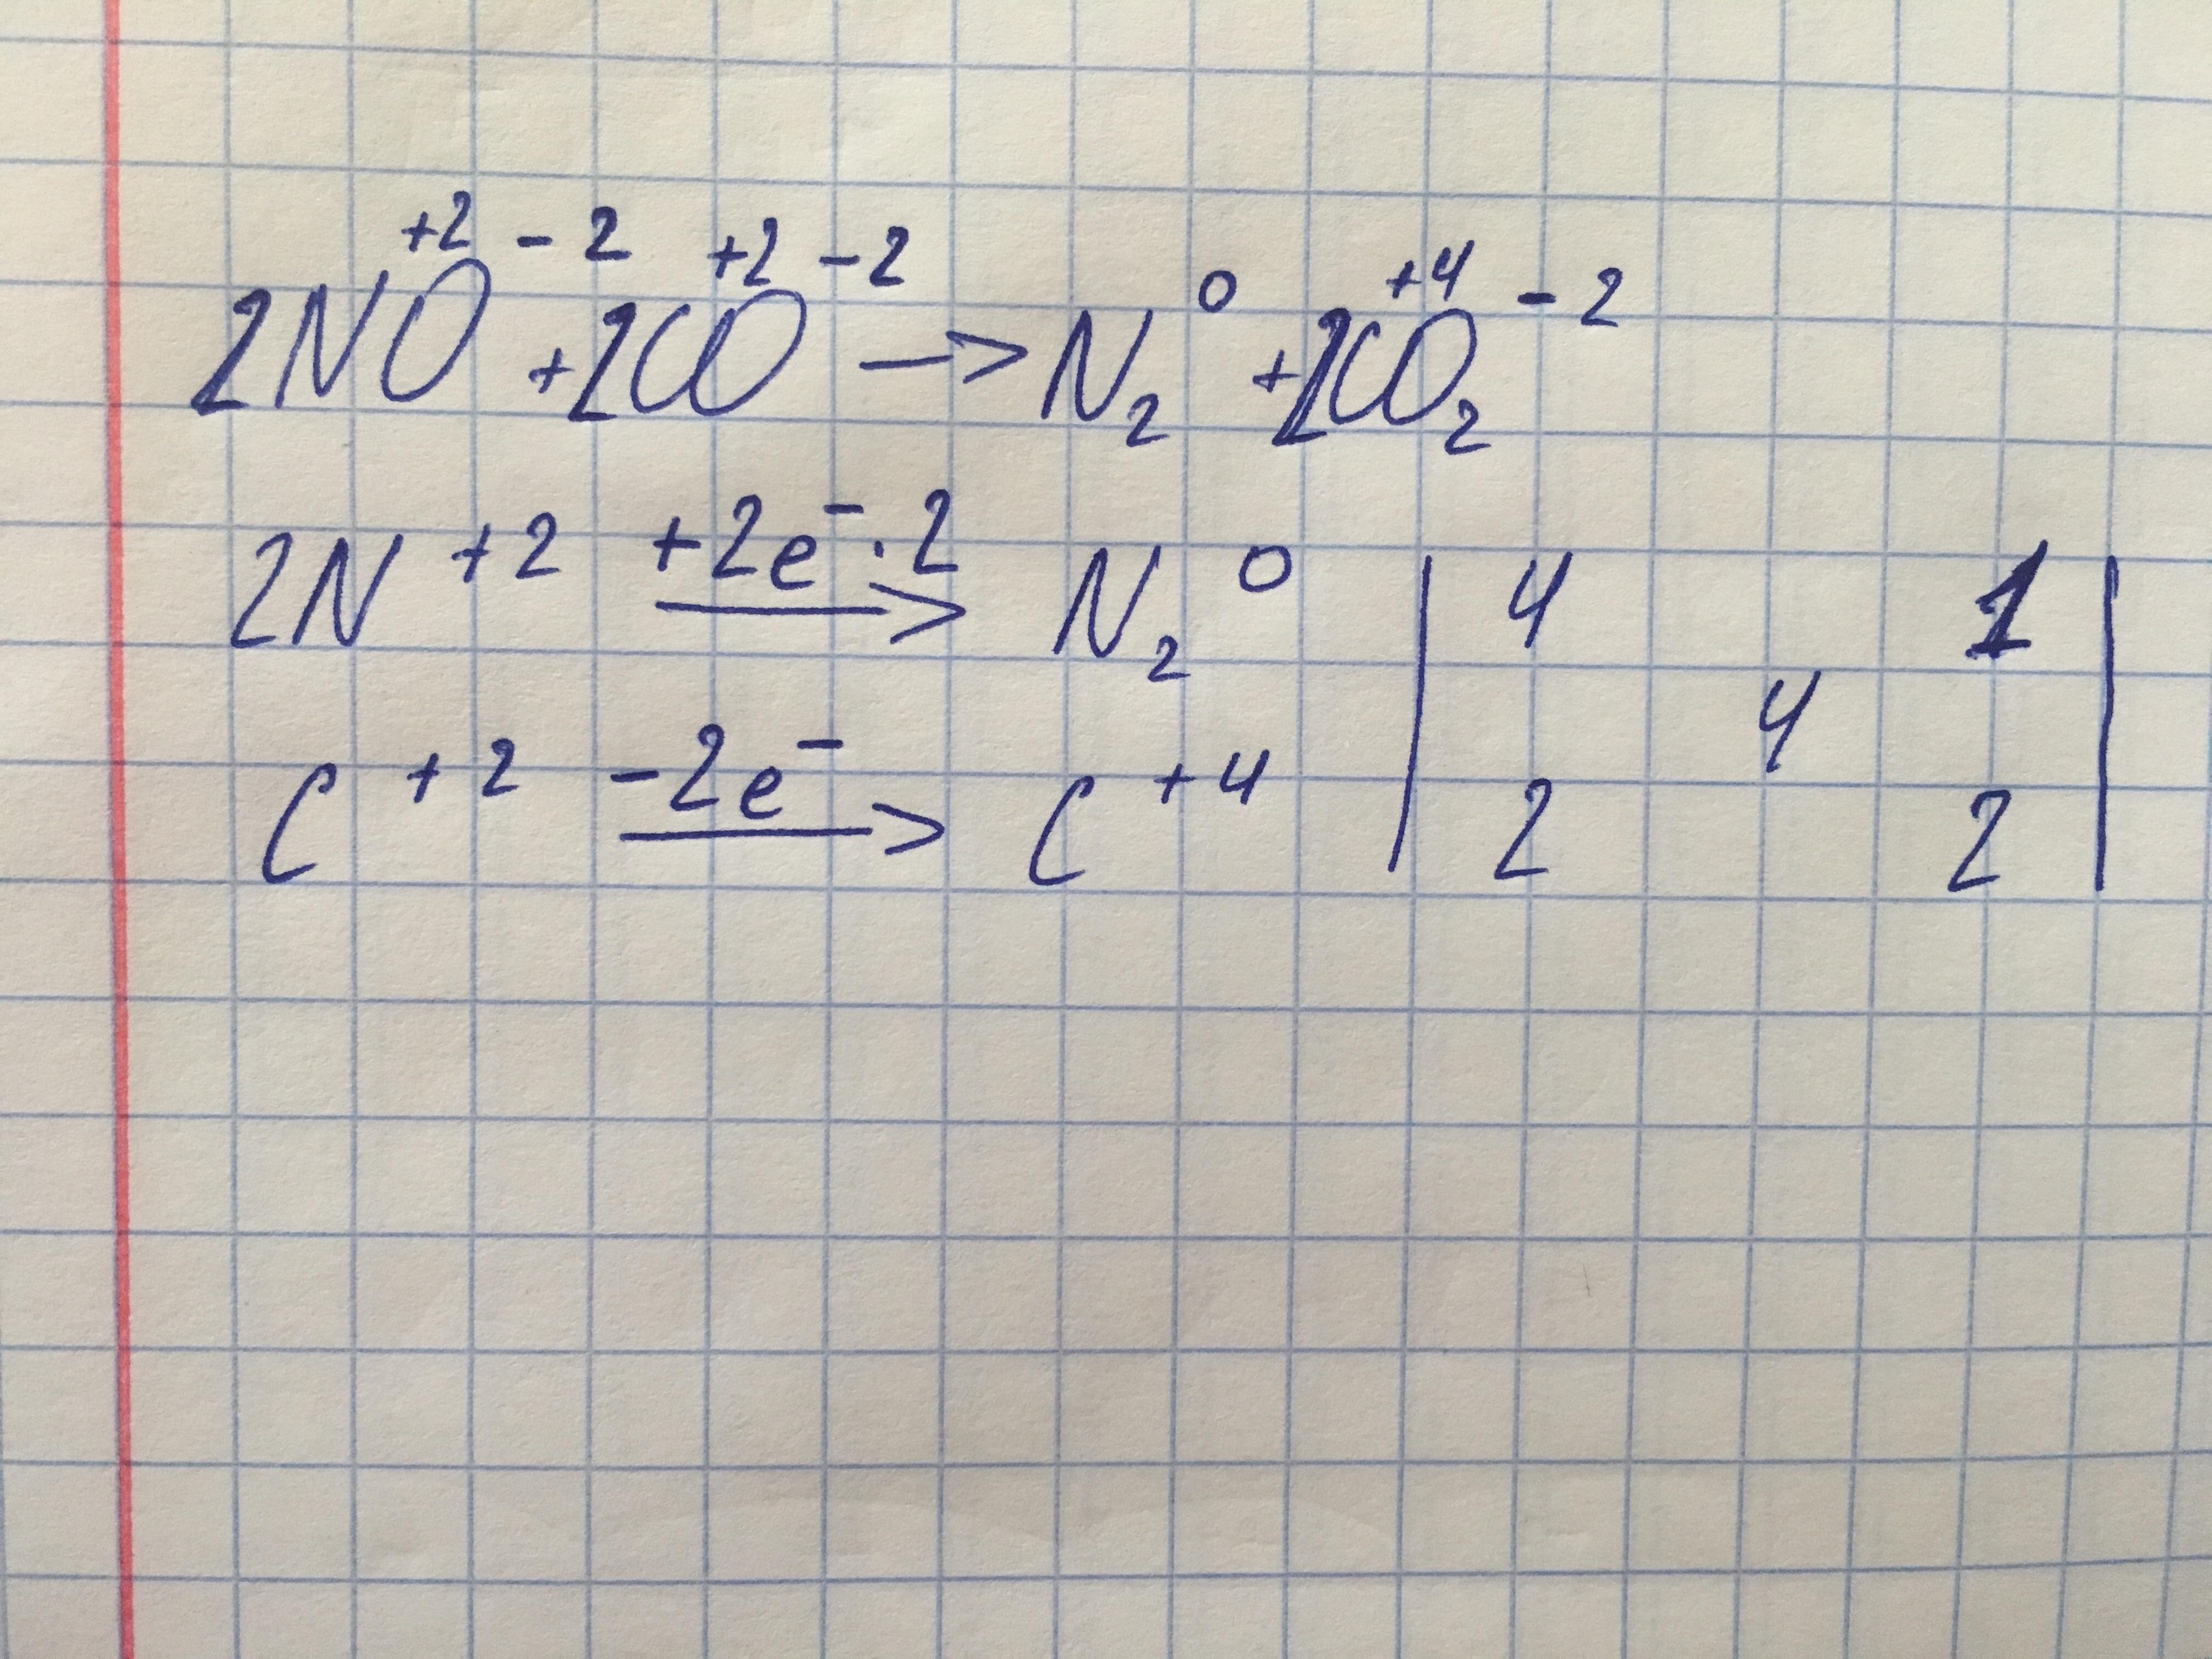 2N⁺²O⁻² + 2C⁺²O⁻² → N₂⁰ + 2C⁺⁴O₂⁻²
2N⁺² +2e⁻·2 → N₂⁰ | 4 4 1 |
C⁺² −2e⁻ → C⁺⁴ | 2 2 |